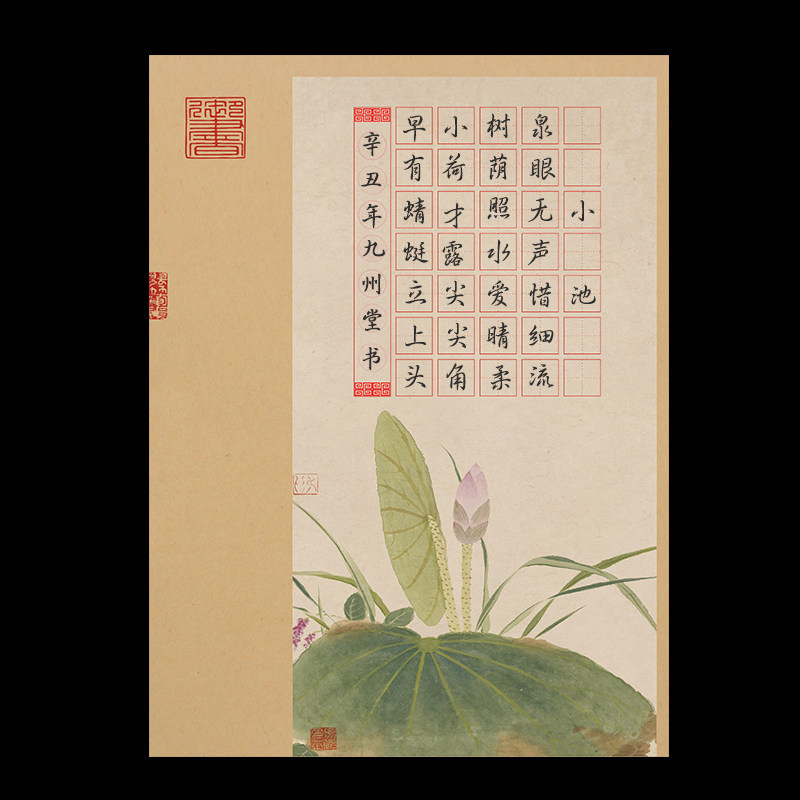 小池
泉眼无声惜细流
树荫照水爱晴柔
小荷才露尖尖角
早有蜻蜓立上头
辛丑年九州堂书